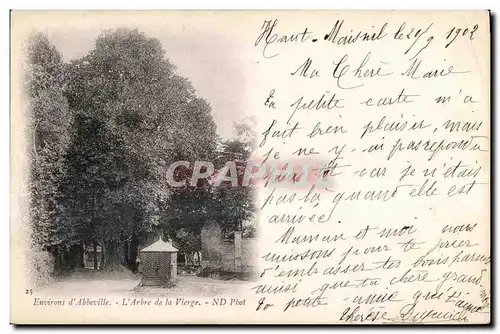 Haut-Maisnil le 20/9 1902
Ma Chère Marie
Ta petite carte m'a
fait bien plaisir, mais
je ne y ai pas répondu
car je n'étais
pas là quand elle est
arrivée.
Maman et moi nous
unissons pour te prier
d'embrasser ter bons parents
ainsi que ta chère grand
ta petite amie qui t'aime
Thérèse
CPARAMA
25 Environs d'Abbeville. - L'Arbre de la Vierge. - ND Phot